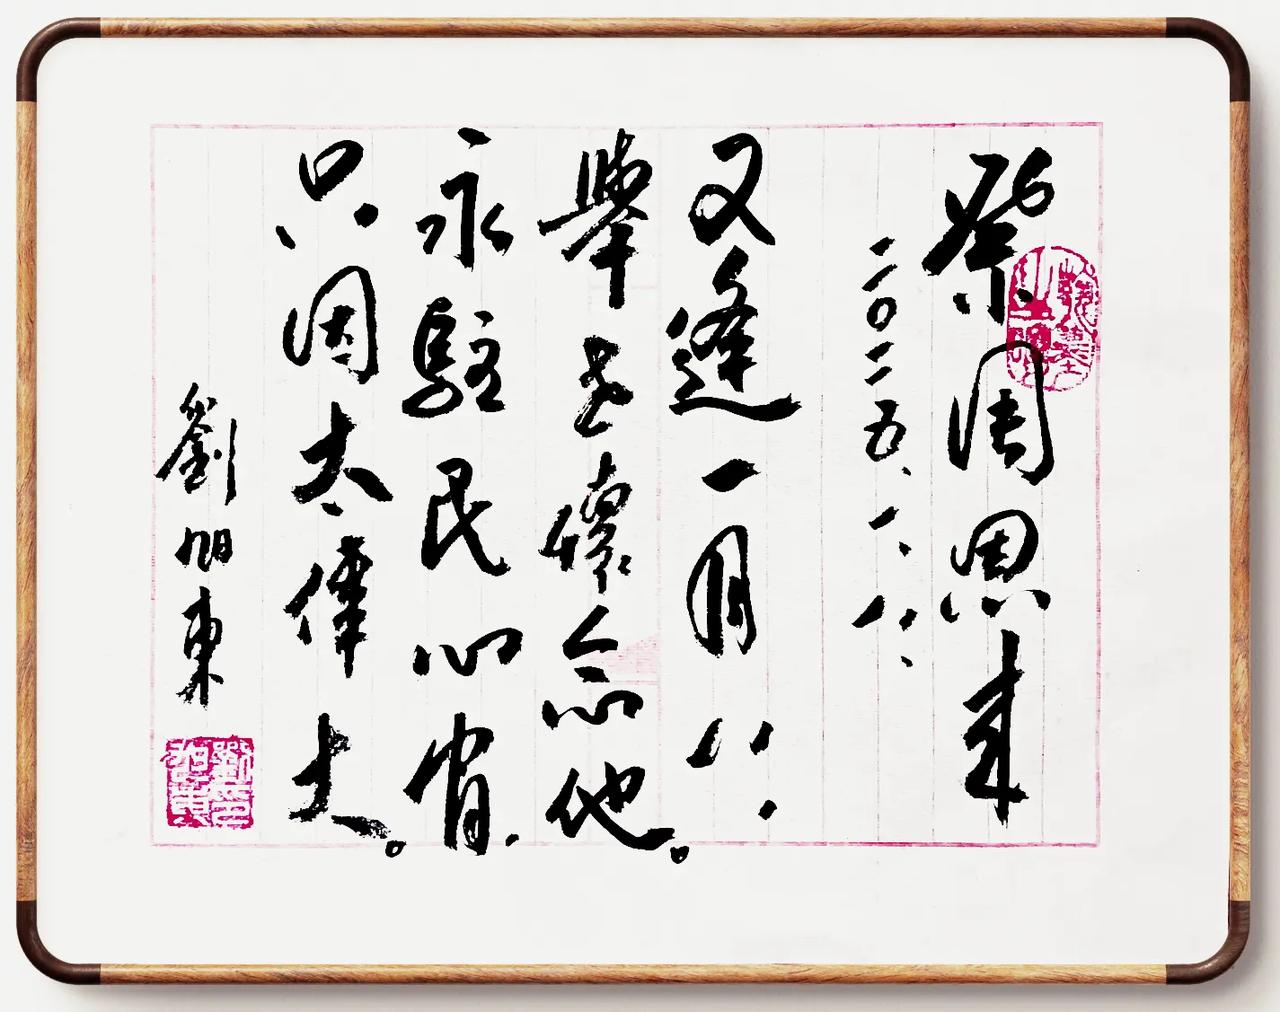 祭周恩来
二〇二五、一、八、
又逢一月八,
舉世懷念他。
永駐民心,
只因太偉大。
劉旭東
劉印旭東